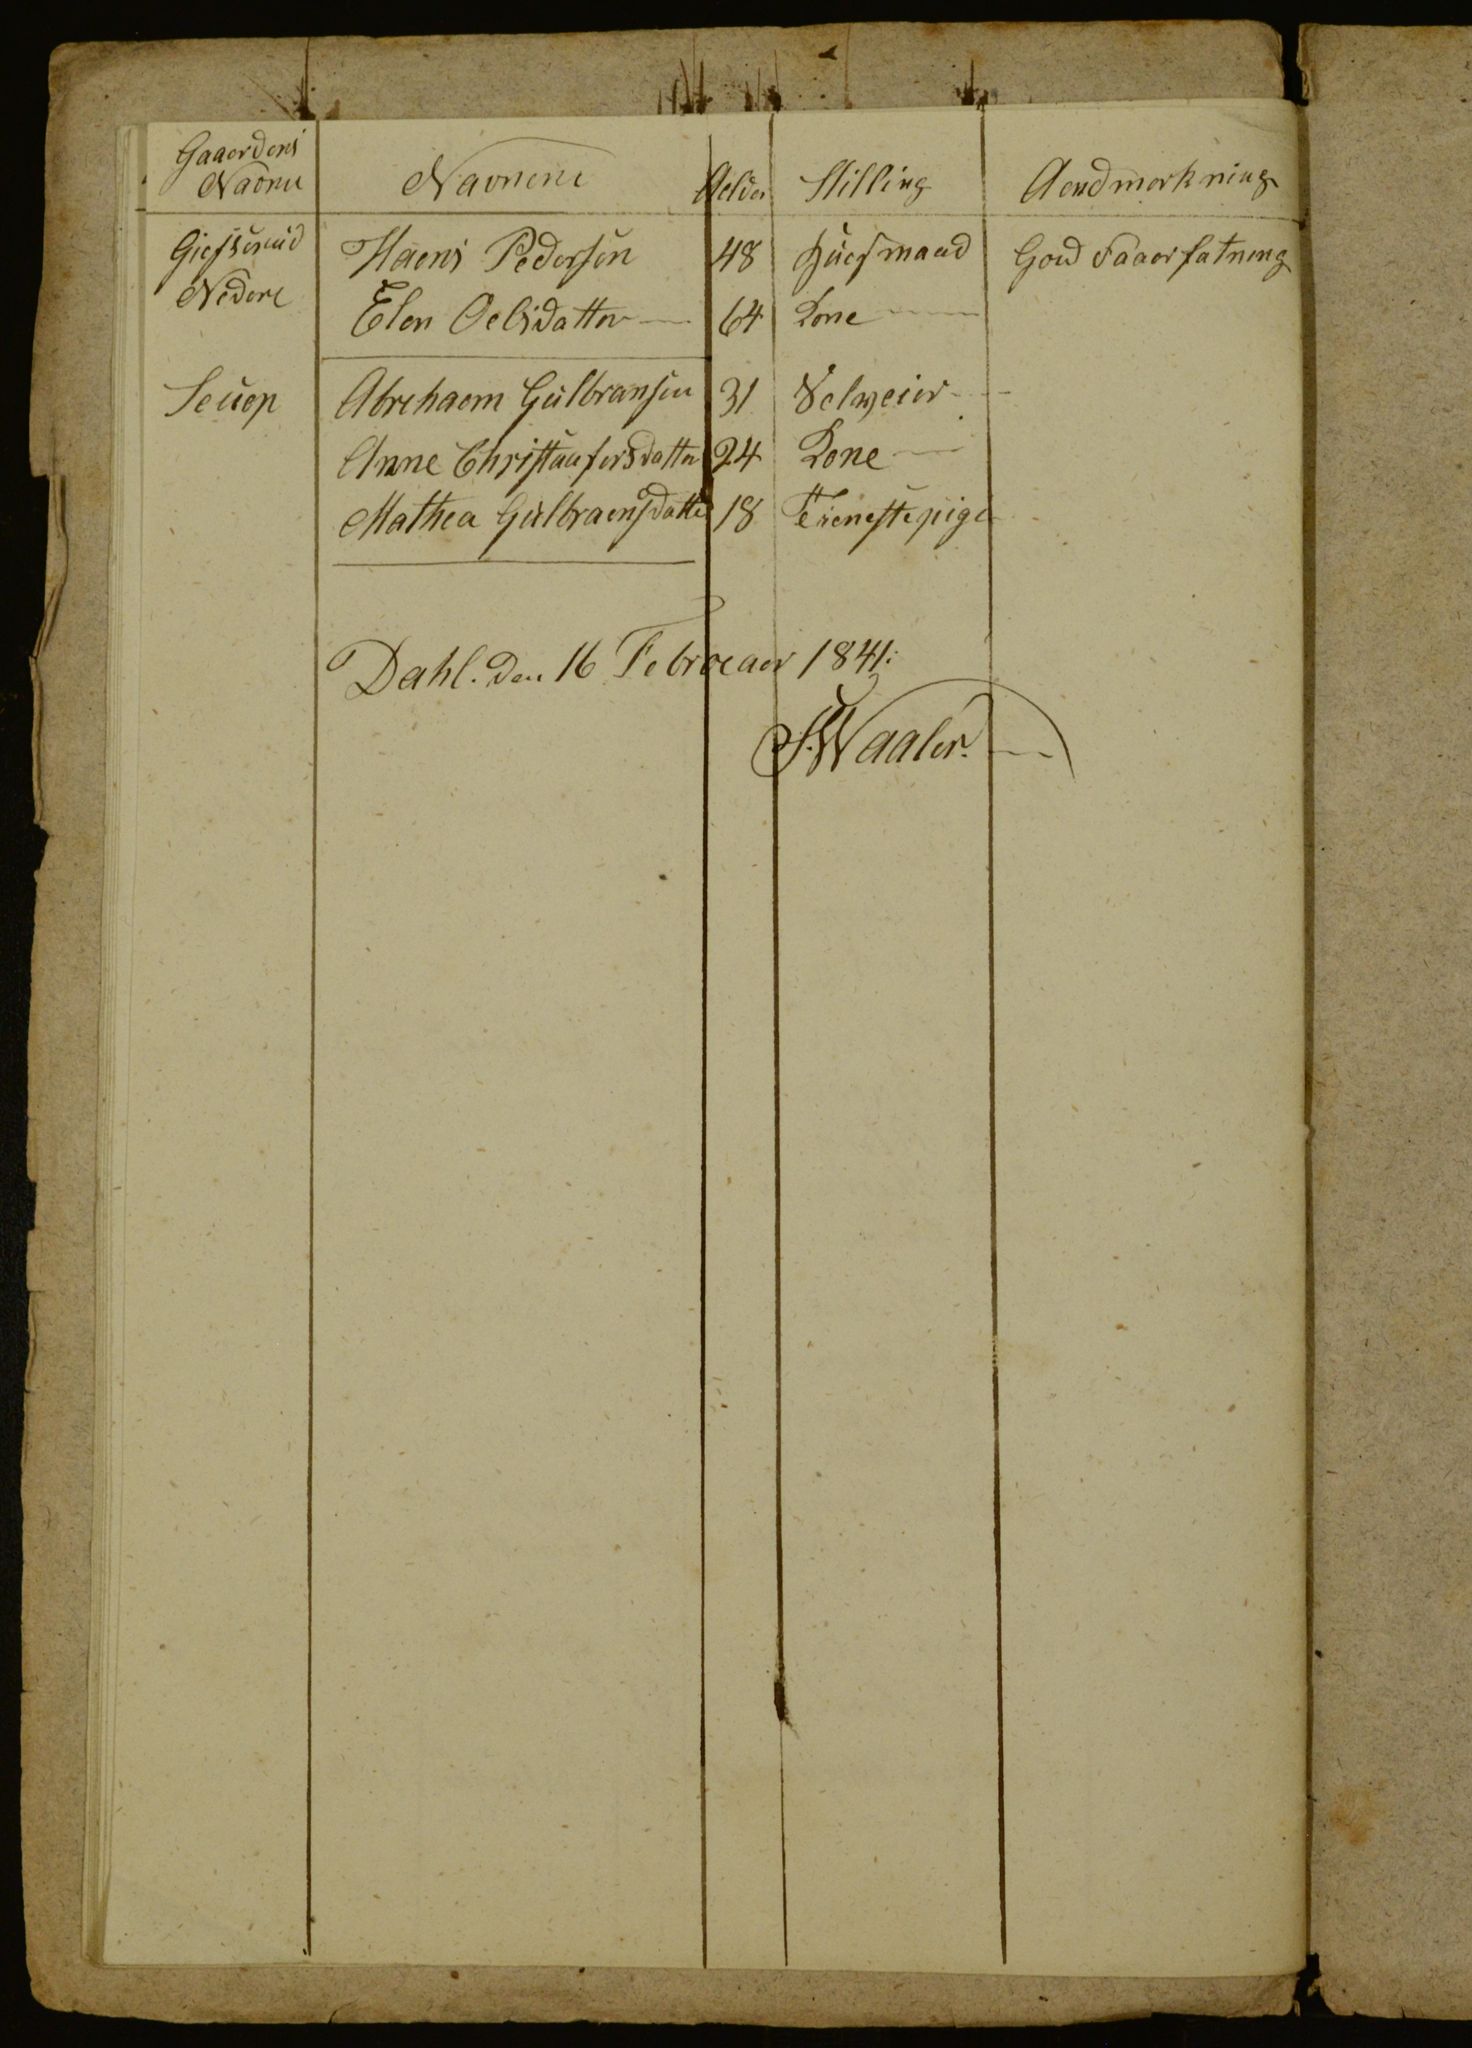 Gaaerdens Navne | Navnene | Aelder | Stilling | Aendmerkning
Giefserud Nedere | Haens Pedersen | 48 | Huesmand | Goed Faaerfatneng
Elen Oelsdatter | 64 | Kone
Seuep | Abrehaem Gulbransen | 31 | Selveier
Anne Christaufersdatter | 24 | Kone
Mathea Gulbraensdatte | 18 | Tienestepige
Dahl. Den 16 Febroeaer 1841.
Waaler.